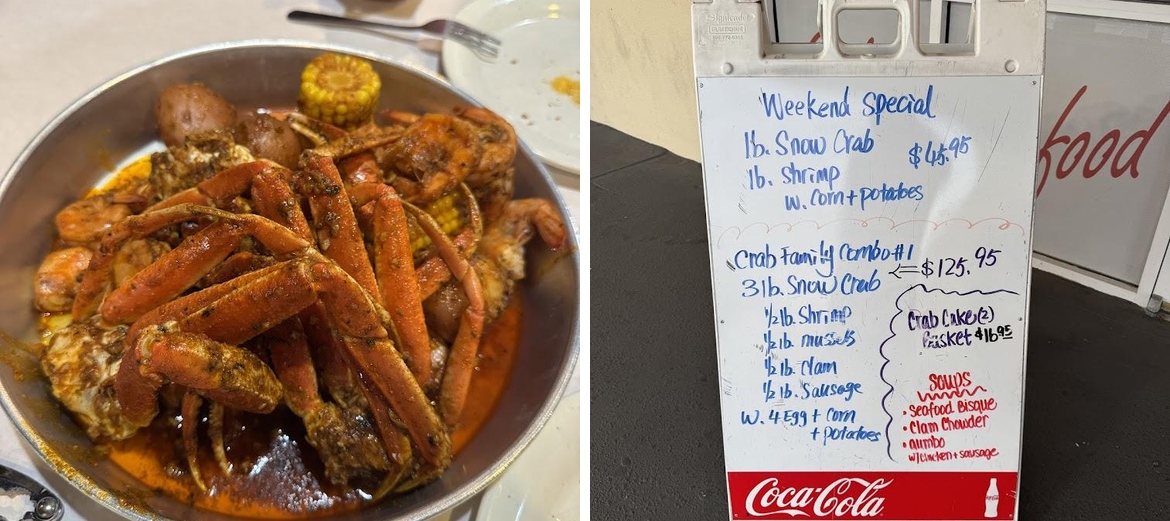 Signicade
Weekend Special
1b. Snow Crab $45.95
1b. Shrimp
w. Corn + potatoes
food
Crab Family Combo #1
$125.95
3 lb. Snow Crab
1/2 lb. Shrimp
1/2 lb. mussels
1/2 lb. Clam
1/2 lb. Sausage
W. 4 Egg + Corn
+ potatoes
Crab Cake (2)
Basket $16.95
Soups
• Seafood Bisque
• Clam Chowder
• Gumbo
w/chicken + sausage
Coca-Cola